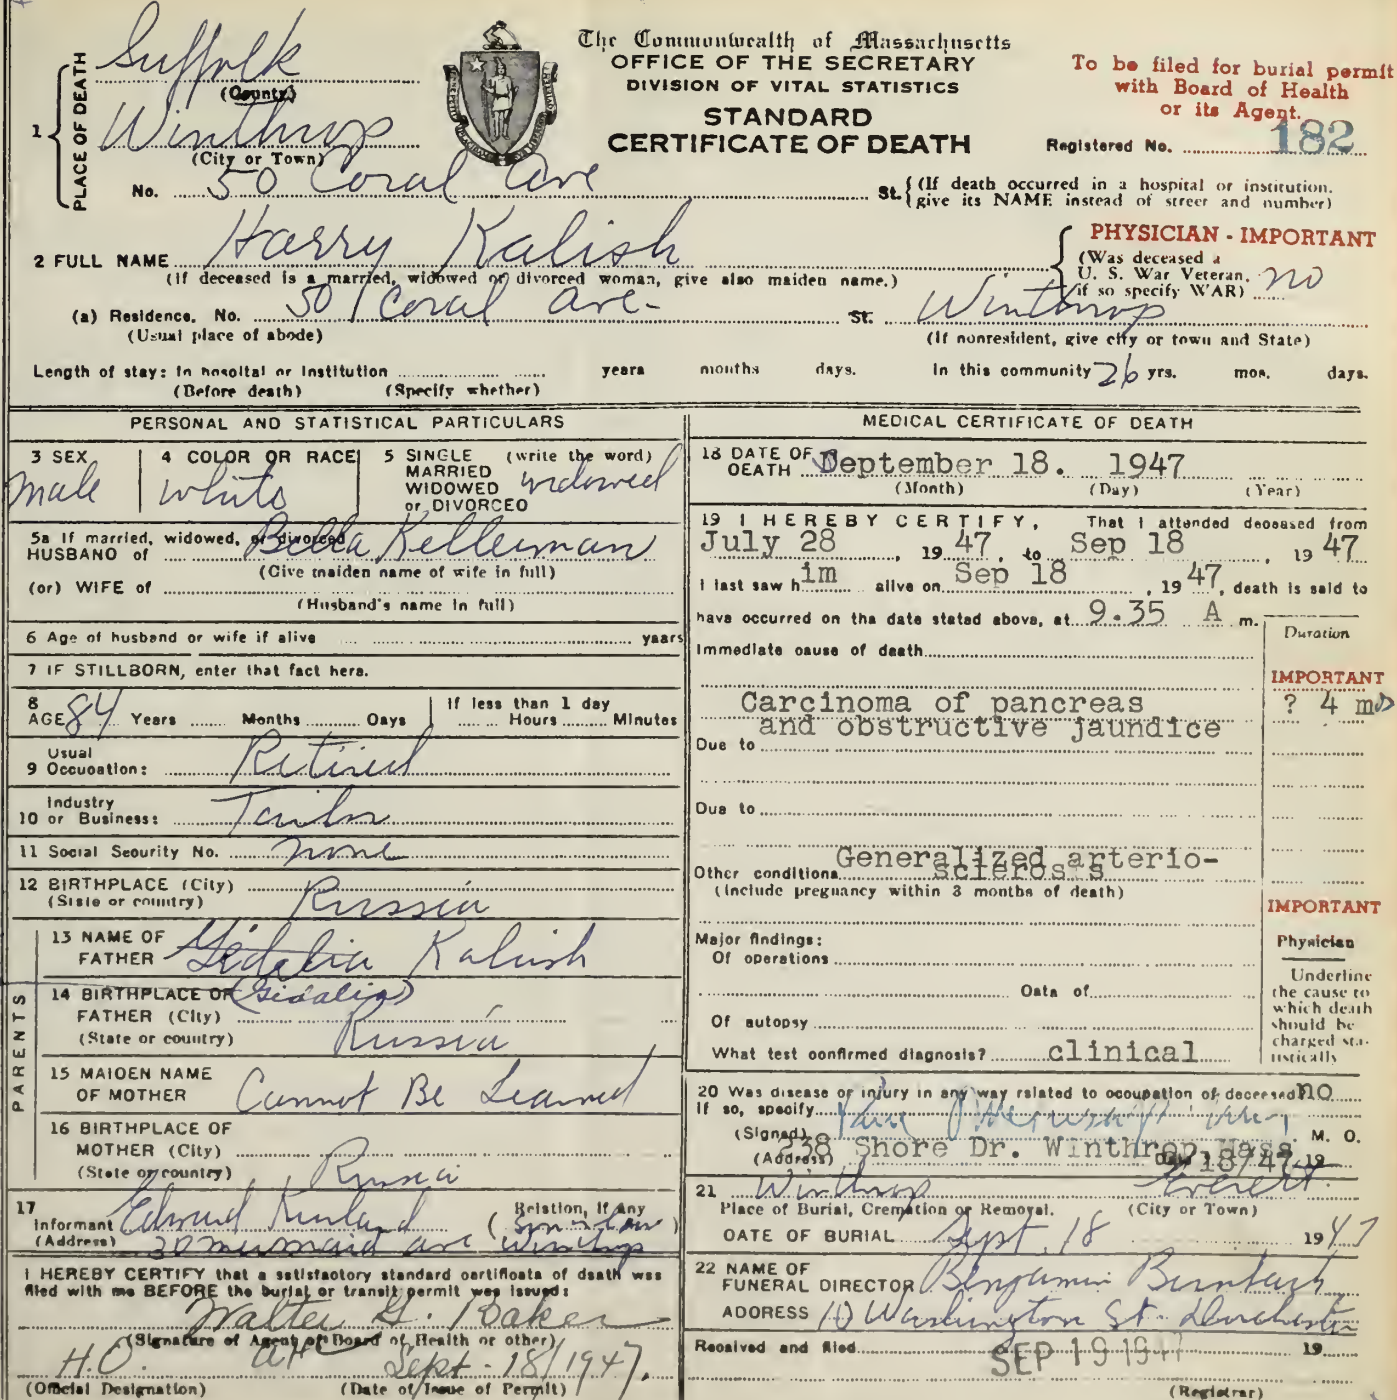 The Commonwealth of Massachusetts
OFFICE OF THE SECRETARY
DIVISION OF VITAL STATISTICS
STANDARD
CERTIFICATE OF DEATH
To be filed for burial permit
with Board of Health
or its Agent.
Registered No. 182
1 PLACE OF DEATH
Suffolk
(County)
Winthrop
(City or Town)
No. 50 Coral Ave St. {(If death occurred in a hospital or institution, give its NAME instead of street and number)
2 FULL NAME Harry Kalish
(If deceased is a married, widowed or divorced woman, give also maiden name.)
PHYSICIAN - IMPORTANT
(Was deceased a
U. S. War Veteran,
if so specify WAR) no
(a) Residence, No. 50 Coral Ave- St. Winthrop
(Usual place of abode) (If nonresident, give city or town and State)
Length of stay: In hospital or Institution years months days. In this community 26 yrs. mos. days.
(Before death) (Specify whether)
PERSONAL AND STATISTICAL PARTICULARS
3 SEX male
4 COLOR OR RACE white
5 SINGLE MARRIED WIDOWED or DIVORCED (write the word) widowed
5a If married, widowed, or divorced
HUSBAND of Bella Kellerman
(Give maiden name of wife in full)
(or) WIFE of
(Husband's name in full)
6 Age of husband or wife if alive years
7 IF STILLBORN, enter that fact here.
8 AGE 84 Years Months Days If less than 1 day Hours Minutes
9 Usual Occupation: Retired
10 Industry or Business: Tailor
11 Social Security No. none
12 BIRTHPLACE (City)
(State or country) Russia
PARENTS
13 NAME OF FATHER Gedalia Kalish
(Gidalia)
14 BIRTHPLACE OF FATHER (City)
(State or country) Russia
15 MAIDEN NAME OF MOTHER Cannot Be Learned
16 BIRTHPLACE OF MOTHER (City)
(State or country) Russia
17 Informant Edward (Relation, If Any Son in law)
(Address) 30 Mermaid Ave Winthrop
I HEREBY CERTIFY that a satisfactory standard certificate of death was
filed with me BEFORE the burial or transit permit was issued:
Walter G. Baker
(Signature of Agent of Board of Health or other)
H.O. Sept-18/1947.
(Official Designation) (Date of Issue of Permit)
MEDICAL CERTIFICATE OF DEATH
18 DATE OF DEATH September 18. 1947
(Month) (Day) (Year)
19 I HEREBY CERTIFY, That I attended deceased from
July 28, 1947, to Sep 18, 1947
I last saw him alive on Sep 18, 1947, death is said to
have occurred on the date stated above, at 9.35 A m.
Duration
Immediate cause of death
IMPORTANT
Carcinoma of pancreas ? 4 mos
and obstructive jaundice
Due to
Due to
Generalized arterio-
Other conditions sclerosis
(Include pregnancy within 3 months of death)
IMPORTANT
Major findings:
Of operations
Date of
Of autopsy
What test confirmed diagnosis? clinical
Physician
Underline
the cause to
which death
should be
charged sta-
tistically
20 Was disease or injury in any way related to occupation of deceased no
If so, specify
(Signed) M. D.
(Address) 238 Shore Dr. Winthrop Mass 9/18/47 19
21 Winthrop Everett
Place of Burial, Cremation or Removal. (City or Town)
DATE OF BURIAL Sept. 18 1947
22 NAME OF
FUNERAL DIRECTOR Benjamin Birnbach
ADDRESS 10 Washington St. Dorchester
Received and filed SEP 19 1947 19
(Registrar)